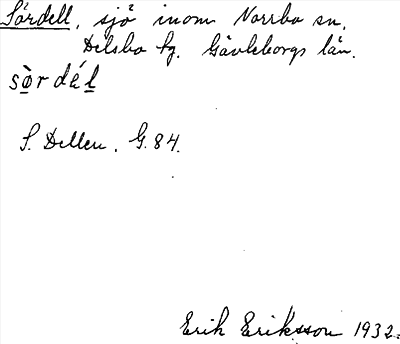 Sördell, sjö inom Norrbo sn,
Delsbo tg. Gävleborgs län.
sòrdél
S. Dellen. G. 84.
Erik Eriksson 1932.